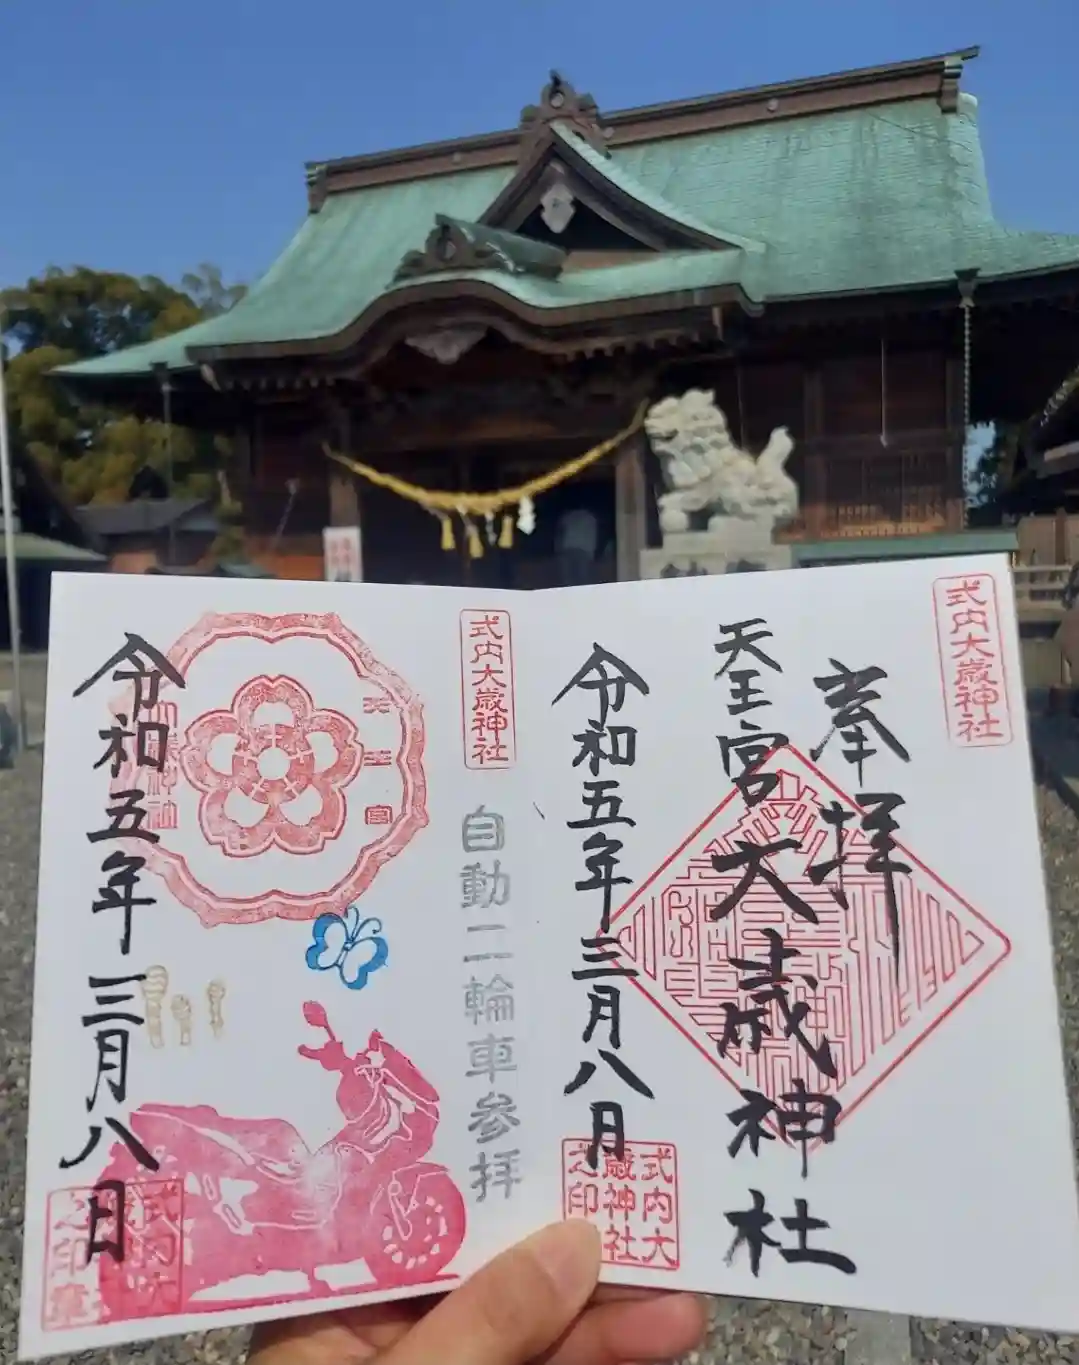 式内大歳神社
奉拝
天王宮大歳神社
令和五年三月八月
式内大
歳神社
之印
式内大歳神社
自動二輪車参拝
令和五年三月八日
式内大
之印章